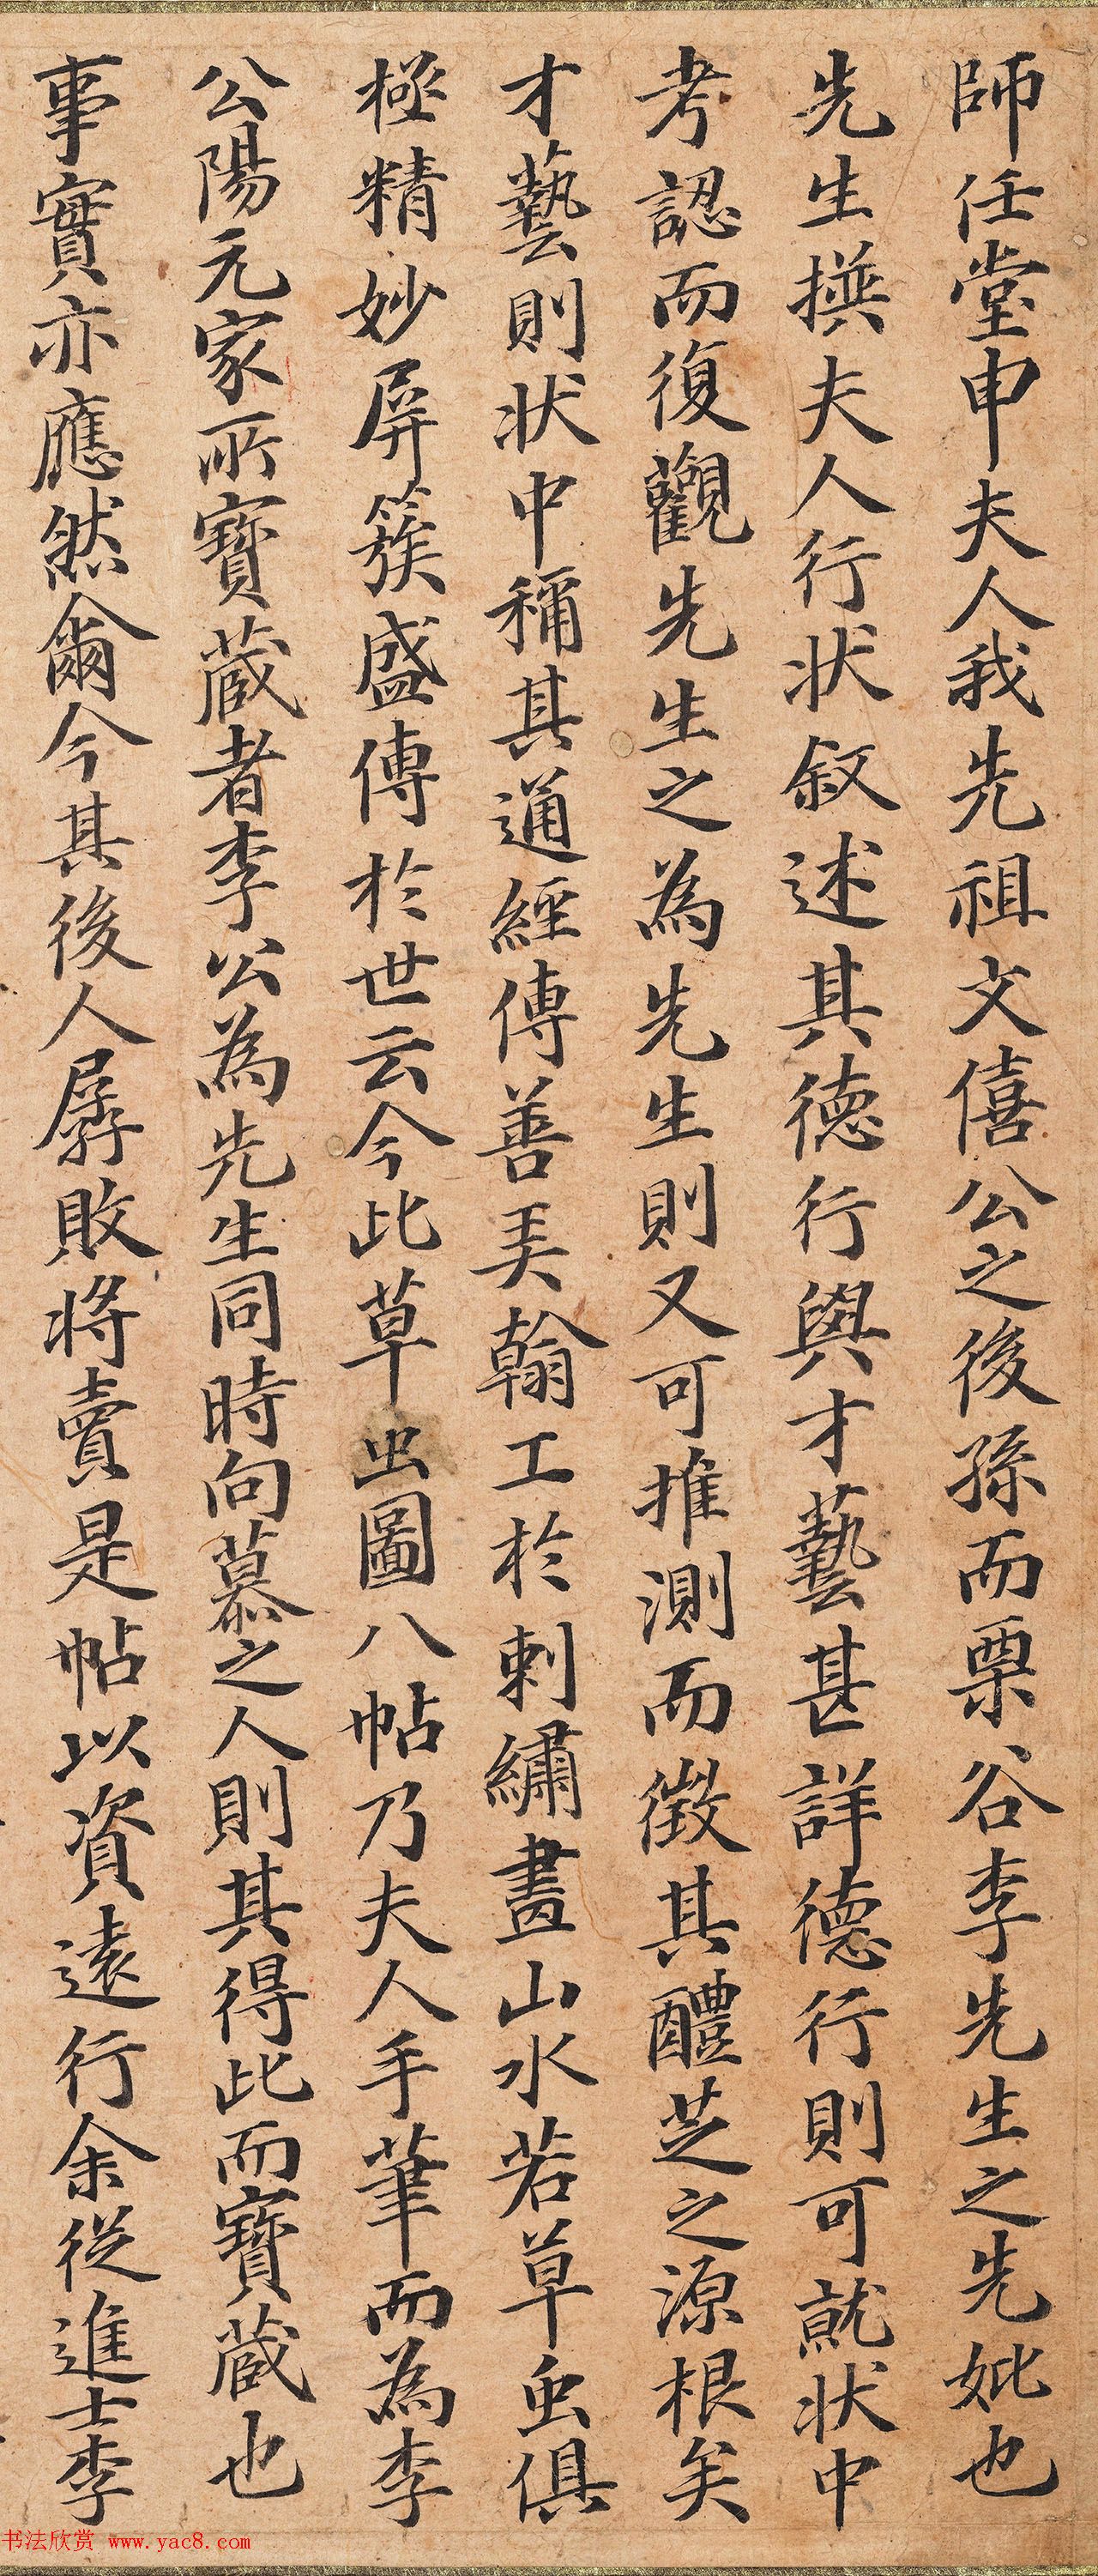 師任堂申夫人我先祖文僖公之後孫而栗谷李先生之先妣也
先生撰夫人行状叙述其德行與才藝甚詳德行則可就状中
考認而復觀先生之為先生則又可推測而徵其醴芝之源根矣
才藝則状中稱其通經傳善美翰工於刺繡畫山水若草虫俱
極精妙屏簇盛傳於世云今此草虫圖八帖乃夫人手筆而為李
公陽元家所寶蔵者李公為先生同時向慕之人則其得此而寶蔵也
事實亦應然爾今其後人孱敗将賣是帖以資遠行余從進士李
书法欣赏 www.yac8.com